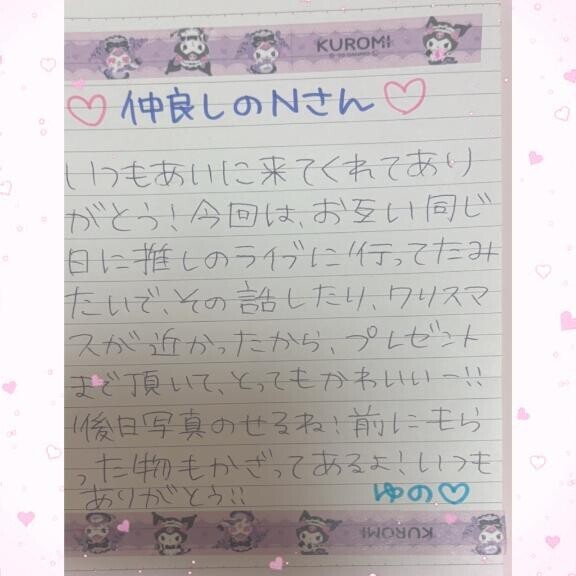 KUROMI
仲良しのNさん
いつもあいに来てくれてあり
がとう!今回は、お互い同じ
日に推しのライブに行ってたみ
たいで、その話したり、クリスマ
スが近かったから、プレゼント
まで頂いて、とってもかわいいー!!
後日写真のせるね!前にもら
った物もかざってあるよ!いつも
ありがとう!!
ゆの
KUROMI